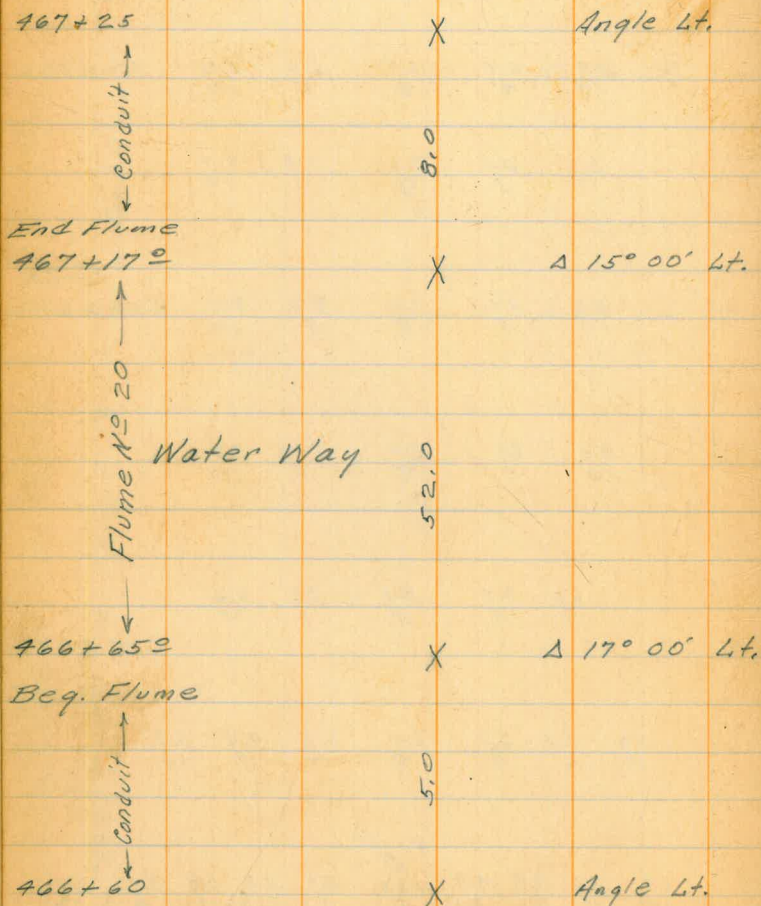 467+25 X Angle Lt.
← Conduit →
8.0
End Flume
467+17⁰ X Δ 15° 00' Lt.
← Flume Nº 20 →
Water Way
52.0
466+65⁰ X Δ 17° 00' Lt.
Beg. Flume
← Conduit →
5.0
466+60 X Angle Lt.